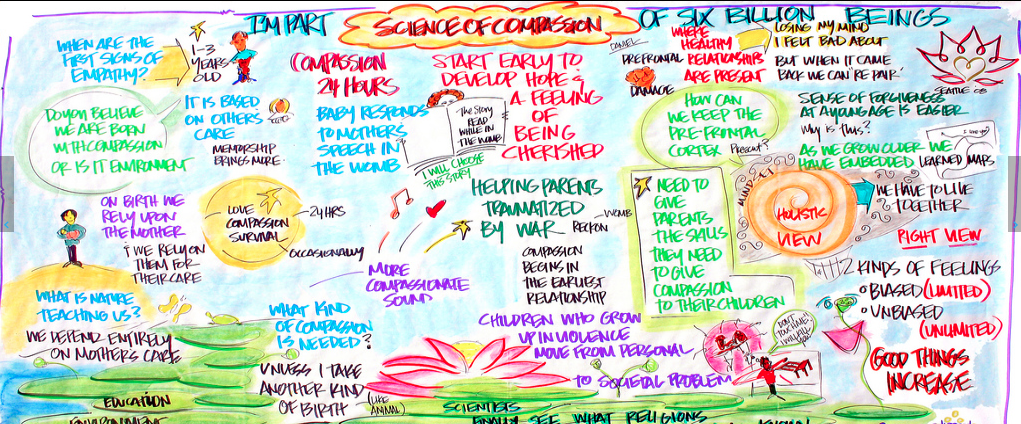 I'M PART
SCIENCE OF COMPASSION
OF SIX BILLION BEINGS
WHEN ARE THE
FIRST SIGNS OF
EMPATHY?
1-3
YEARS
OLD
COMPASSION
24 HOURS
START EARLY TO
DEVELOP HOPE &
A FEELING
OF
BEING
CHERISHED
DANIEL
PREFRONTAL
DAMAGE
WHERE
HEALTHY
RELATIONSHIPS
ARE PRESENT
LOSING MY MIND
I FELT BAD ABOUT
BUT WHEN IT CAME
BACK WE CAN "REPAIR"
SEATTLE 08
DO YOU BELIEVE
WE ARE BORN
WITH COMPASSION
OR IS IT ENVIRONMENT
IT IS BASED
ON OTHERS
CARE
MENTORSHIP
BRINGS MORE
BABY RESPONDS
TO MOTHERS
SPEECH IN
THE WOMB
The Story
READ
WHILE IN
THE WOMB
I WILL CHOOSE
THIS STORY
HOW CAN
WE KEEP THE
PRE-FRONTAL
CORTEX
Present?
SENSE OF FORGIVENESS
AT A YOUNG AGE IS EASIER
Why is this?
AS WE GROW OLDER WE
HAVE EMBEDDED
LEARNED MAPS
ON BIRTH WE
RELY UPON
THE MOTHER
& WE RELY ON
THEM FOR
THEIR CARE
LOVE
COMPASSION
SURVIVAL
24 HRS
OCCASIONALLY
HELPING PARENTS
TRAUMATIZED
BY WAR
WOMB
RECKON
COMPASSION
BEGINS IN
THE EARLIEST
RELATIONSHIP
MORE
COMPASSIONATE
SOUND
NEED TO
GIVE
PARENTS
THE SKILLS
THEY NEED
TO GIVE
COMPASSION
TO THEIR CHILDREN
HOLISTIC
VIEW
WE HAVE TO LIVE
TOGETHER
RIGHT VIEW
2 KINDS OF FEELINGS
BIASED (LIMITED)
UNBIASED
(UNLIMITED)
GOOD THINGS
INCREASE
WHAT IS NATURE
TEACHING US?
WE DEPEND ENTIRELY
ON MOTHERS CARE
WHAT KIND
OF COMPASSION
IS NEEDED?
UNLESS I TAKE
ANOTHER KIND
OF BIRTH (LIKE
ANIMAL)
CHILDREN WHO GROW
UP IN VIOLENCE
MOVE FROM PERSONAL
TO SOCIETAL PROBLEM
EDUCATION
ENVIRONMENT
SCIENTISTS
FINALLY SEE WHAT RELIGIONS